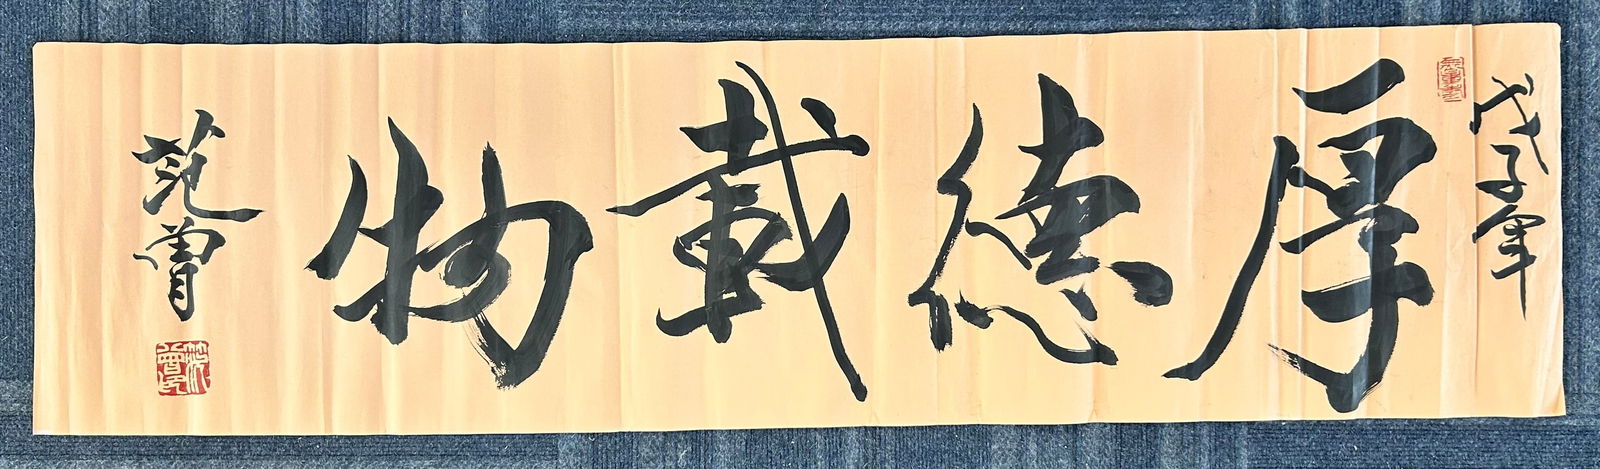 戊子年
厚德載物
范曾